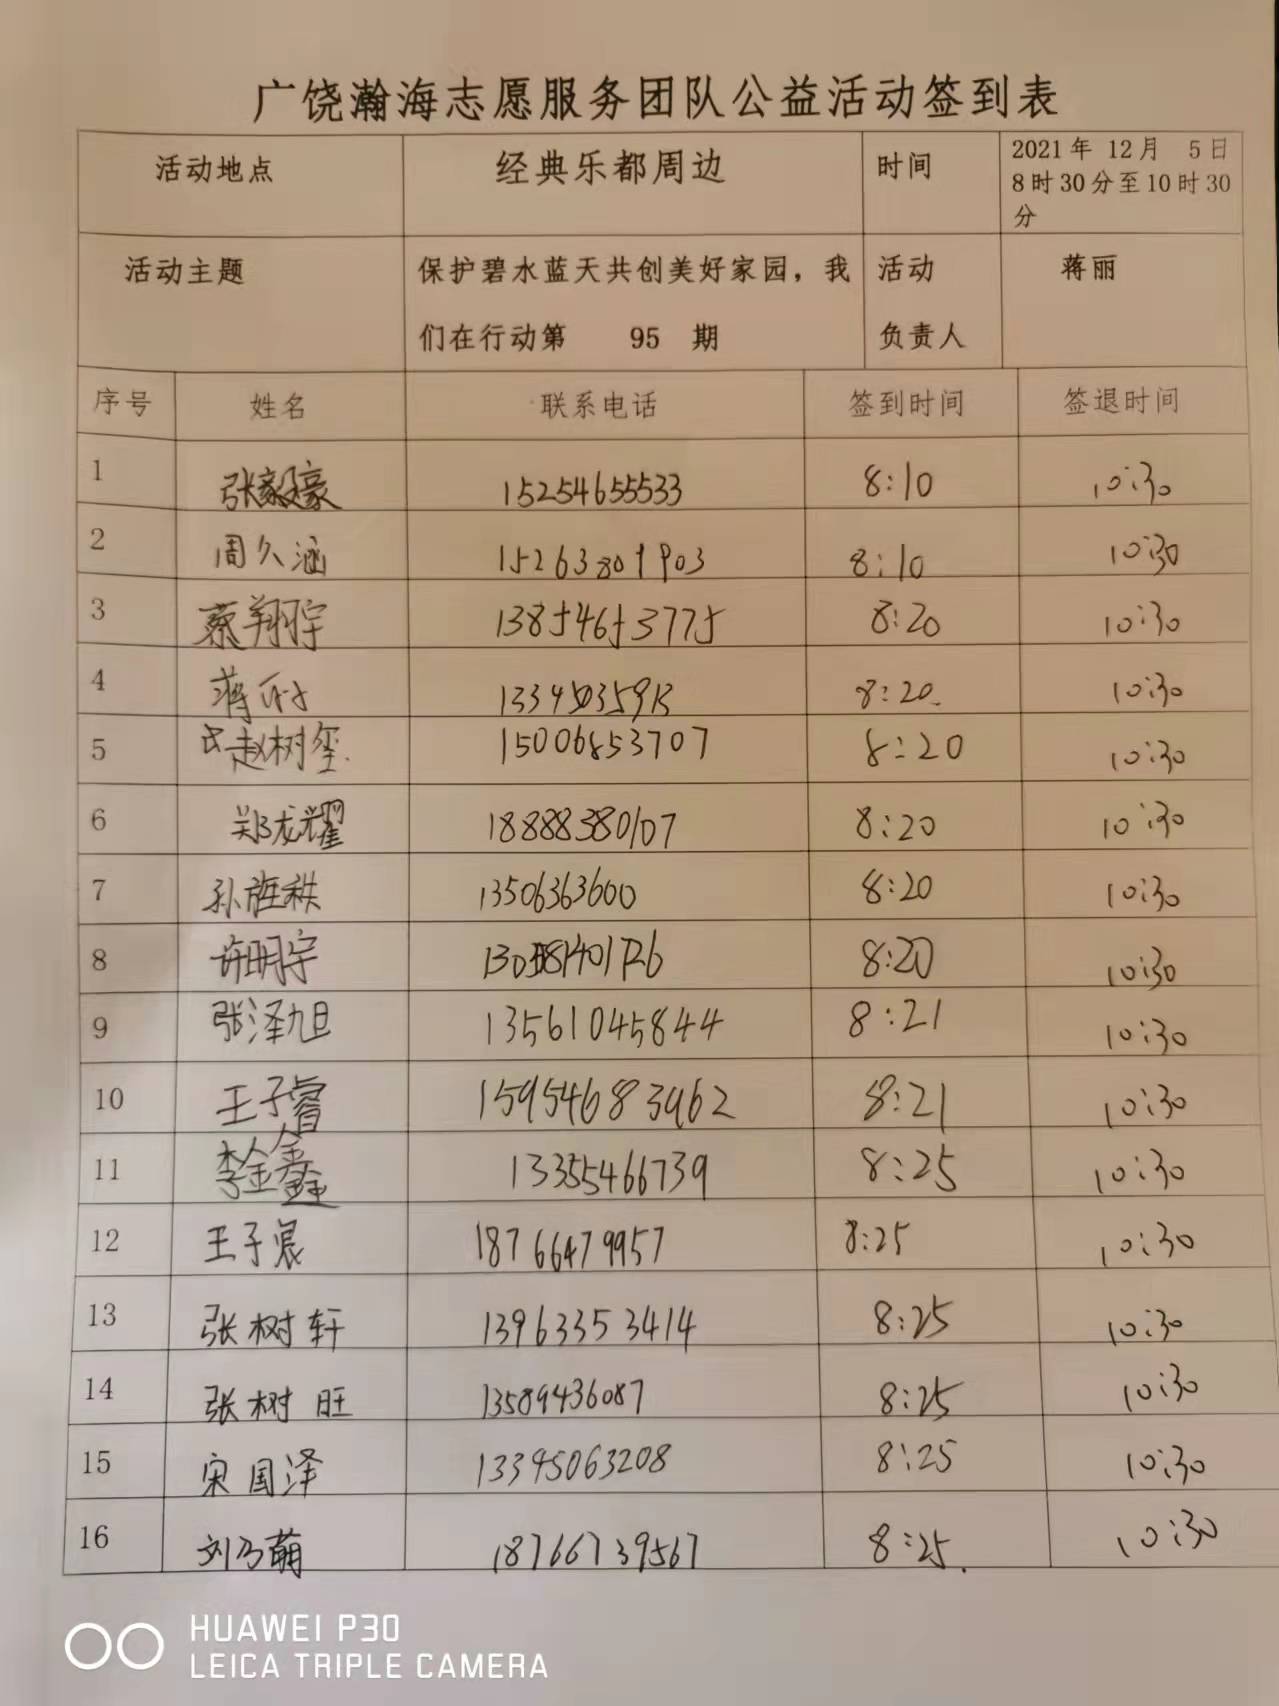 广饶瀚海志愿服务团队公益活动签到表
活动地点 经典乐都周边 时间 2021年 12月 5日
8时30分至10时30
分
活动主题 保护碧水蓝天共创美好家园，我 活动 蒋丽
们在行动第 95 期 负责人
序号 姓名 联系电话 签到时间 签退时间
1 张毅豪 15254655533 8:10 10:30
2 周久涵 15263801903 8:10 10:30
3 蔡翔宇 13854653775 8:20 10:30
4 蒋 8:20 10:30
5 赵树玺 15006853707 8:20 10:30
6 郑龙耀 18888380107 8:20 10:30
7 孙 13506363600 8:20 10:30
8 许明宇 8:20 10:30
9 张泽旭 13561045844 8:21 10:30
10 王子睿 15954683962 8:21 10:30
11 李金鑫 13355466739 8:25 10:30
12 王子宸 18766479957 8:25 10:30
13 张树轩 13963353414 8:25 10:30
14 张树旺 13589436087 8:25 10:30
15 宋国泽 13395063208 8:25 10:30
16 刘乃萌 18766739567 8:25 10:30
HUAWEI P30
LEICA TRIPLE CAMERA